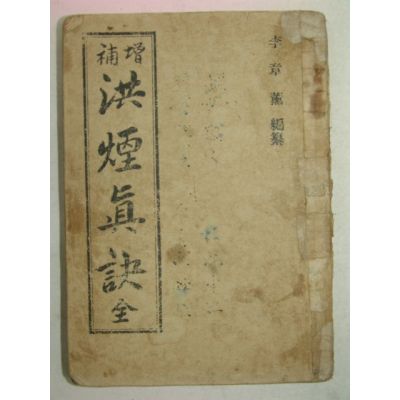 李章薰 編纂
增補
洪煙眞訣 全